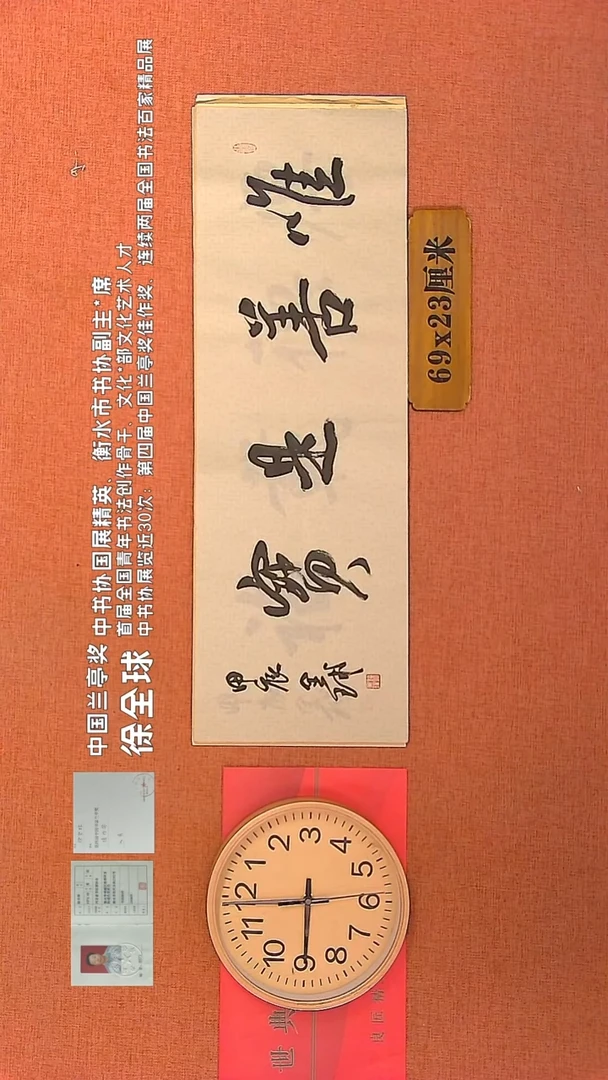 中国兰亭奖 中书协国展精英、衡水市书协副主*席
徐全球
首届全国青年书法创作骨干、文化*部文化艺术人才
中书协展览近30次：第四届中国兰亭奖佳作奖、连续两届全国书法百家精品展
惟善是寶
甲辰
全球
69x23厘米
12
1
2
3
4
5
6
7
8
9
10
11
世典